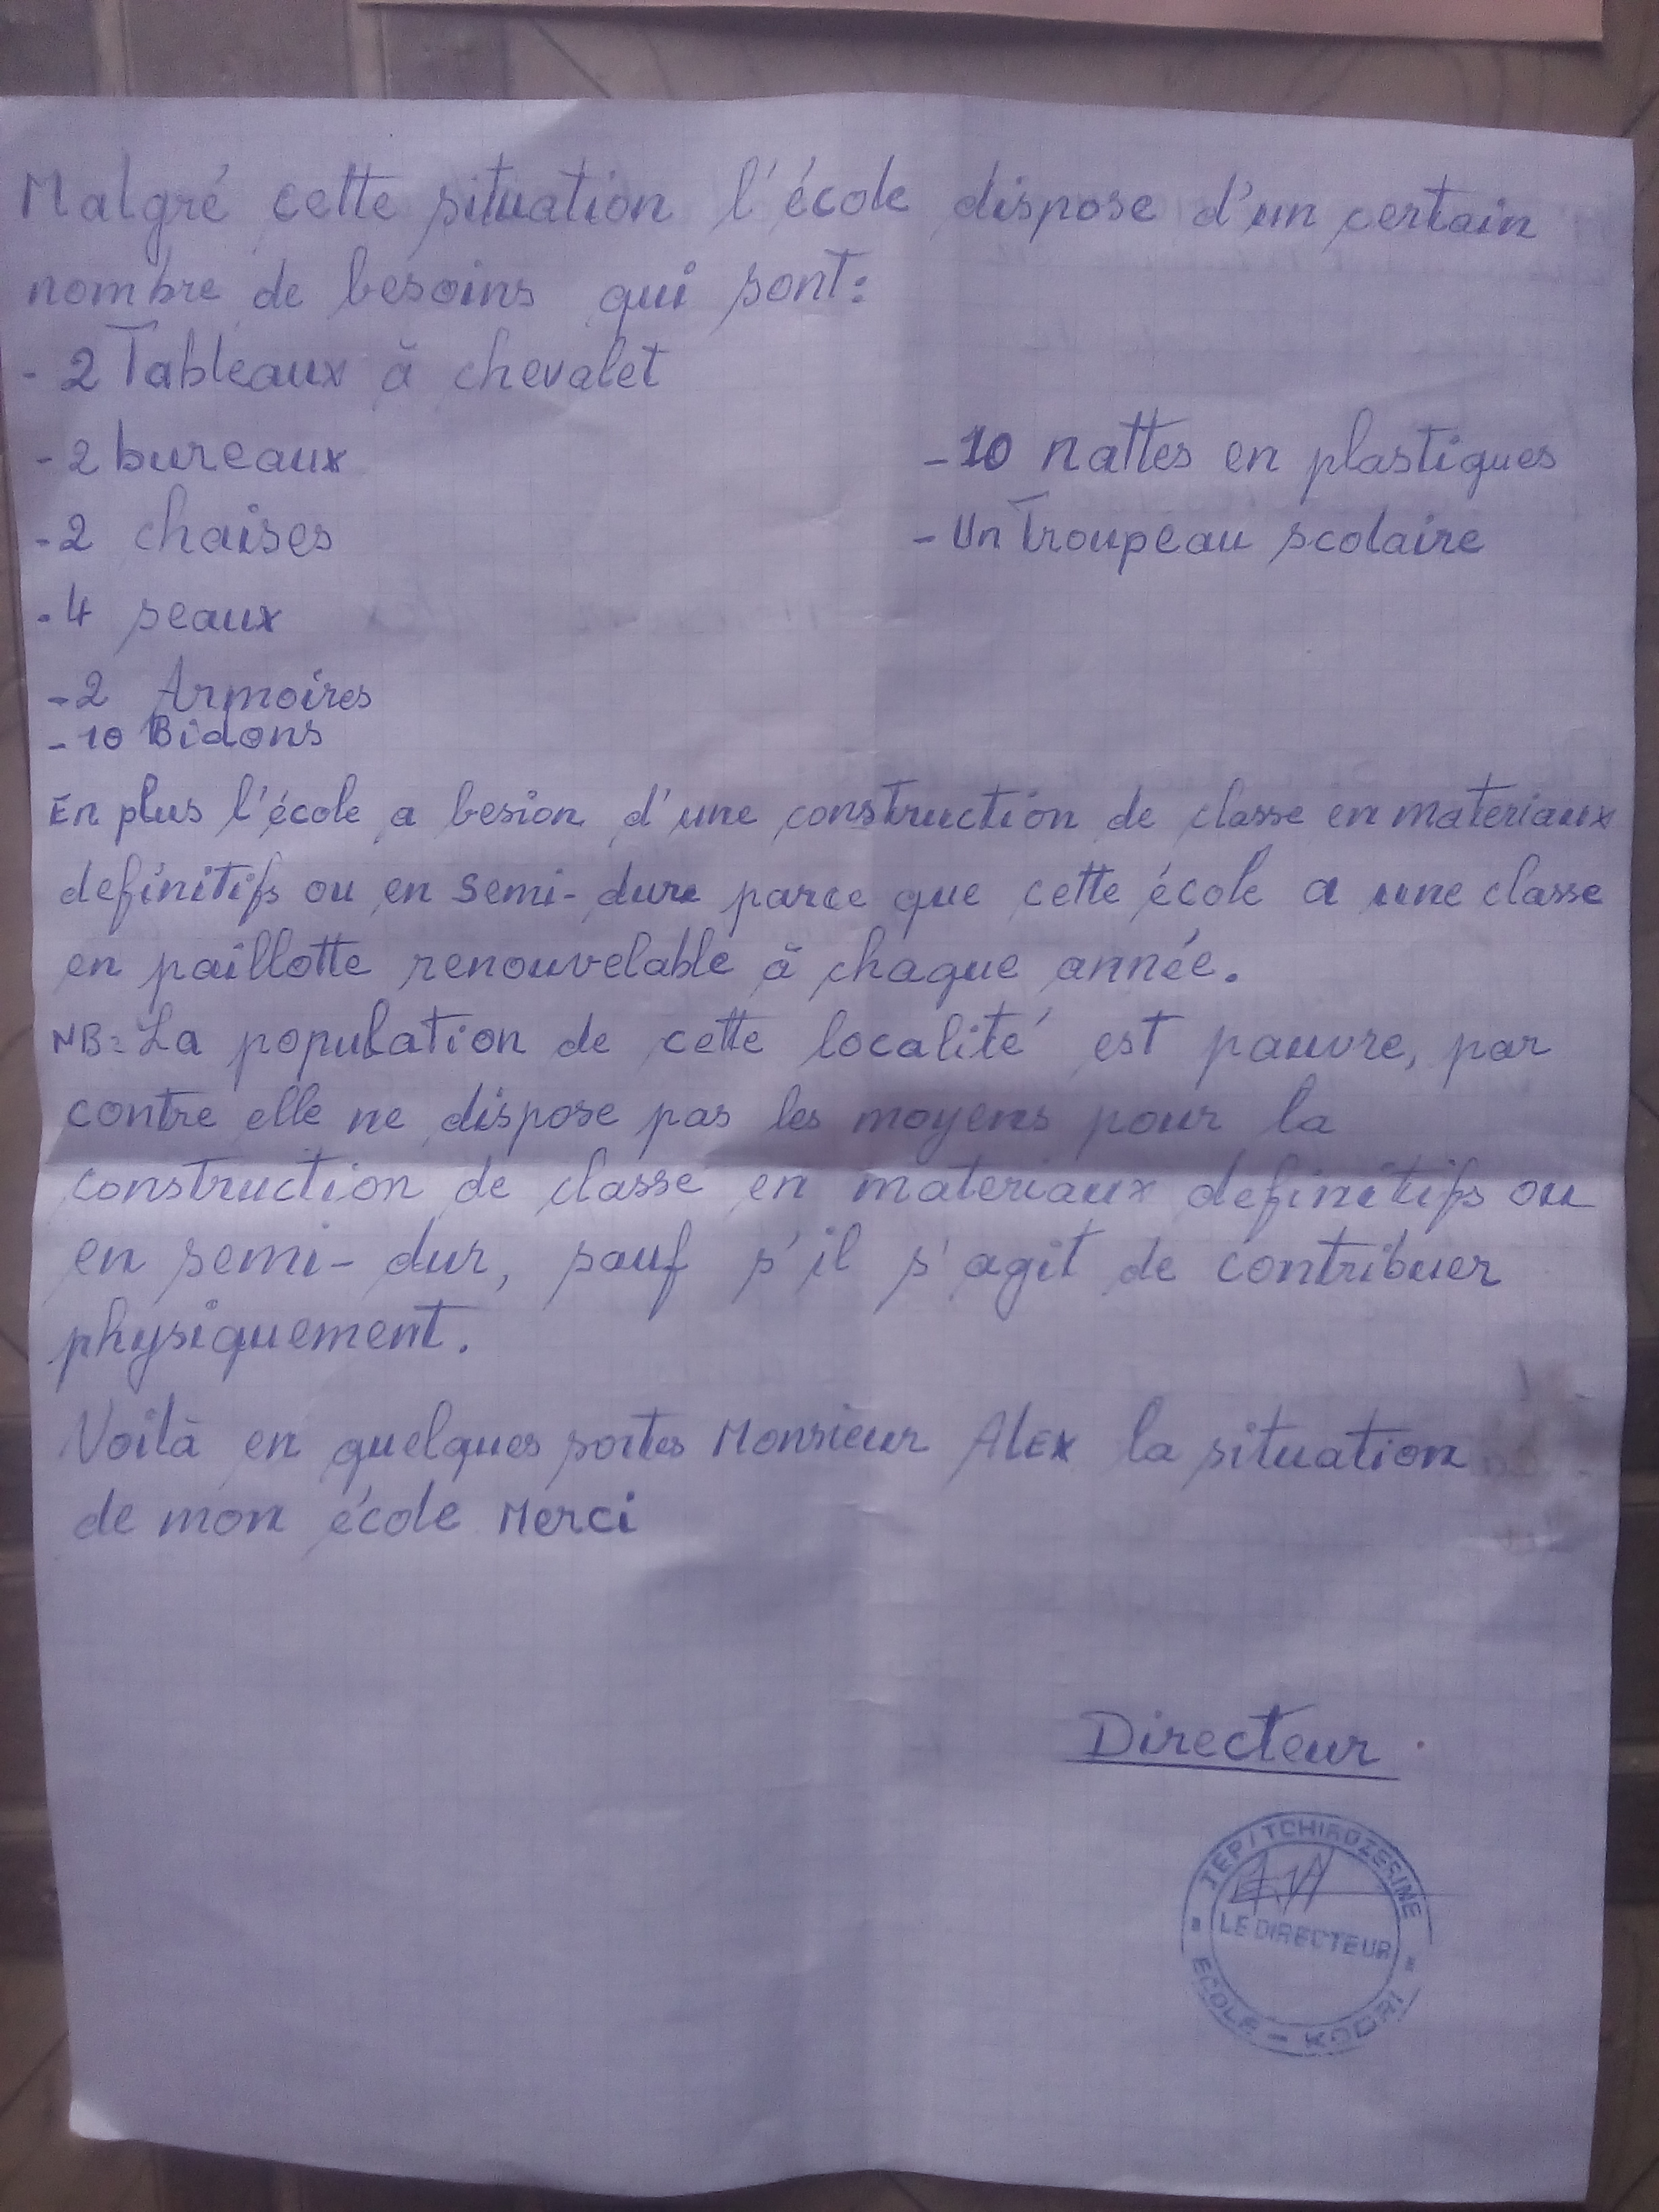 Malgré cette situation l'école dispose d'un certain
nombre de besoins qui sont:
- 2 Tableaux à chevalet
- 2 bureaux
- 2 chaises
- 4 seaux
- 2 Armoires
- 10 Bidons
- 10 nattes en plastiques
- Un Troupeau scolaire
En plus l'école a besion d'une construction de classe en materiaux
definitifs ou en semi-dure parce que cette école a une classe
en paillotte renouvelable à chaque année.
NB: La population de cette localité est pauvre, par
contre elle ne dispose pas les moyens pour la
construction de classe en materiaux definitifs ou
en semi-dur, sauf s'il s'agit de contribuer
physiquement.
Voilà en quelques sortes Monsieur Alex la situation
de mon école Merci
Directeur
IEP/TCHIROZERINE
LE DIRECTEUR
ECOLE -